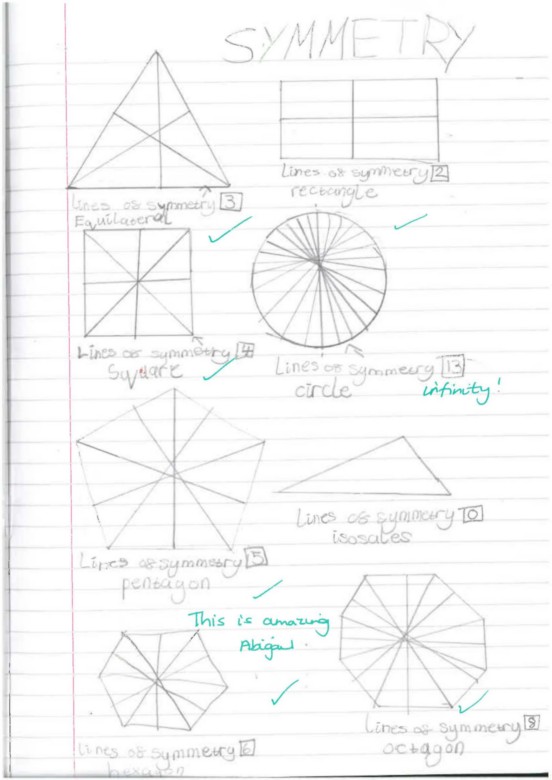 SYMMETRY
Lines of symmetry 3
Equilateral
Lines of symmetry 2
rectangle
Lines of symmetry 4
Square
Lines of symmetry 13
circle
infinity!
Lines of symmetry 5
pentagon
Lines of symmetry 0
isosales
This is amazing
Abigail.
Lines of symmetry 6
hexagon
Lines of symmetry 8
octagon